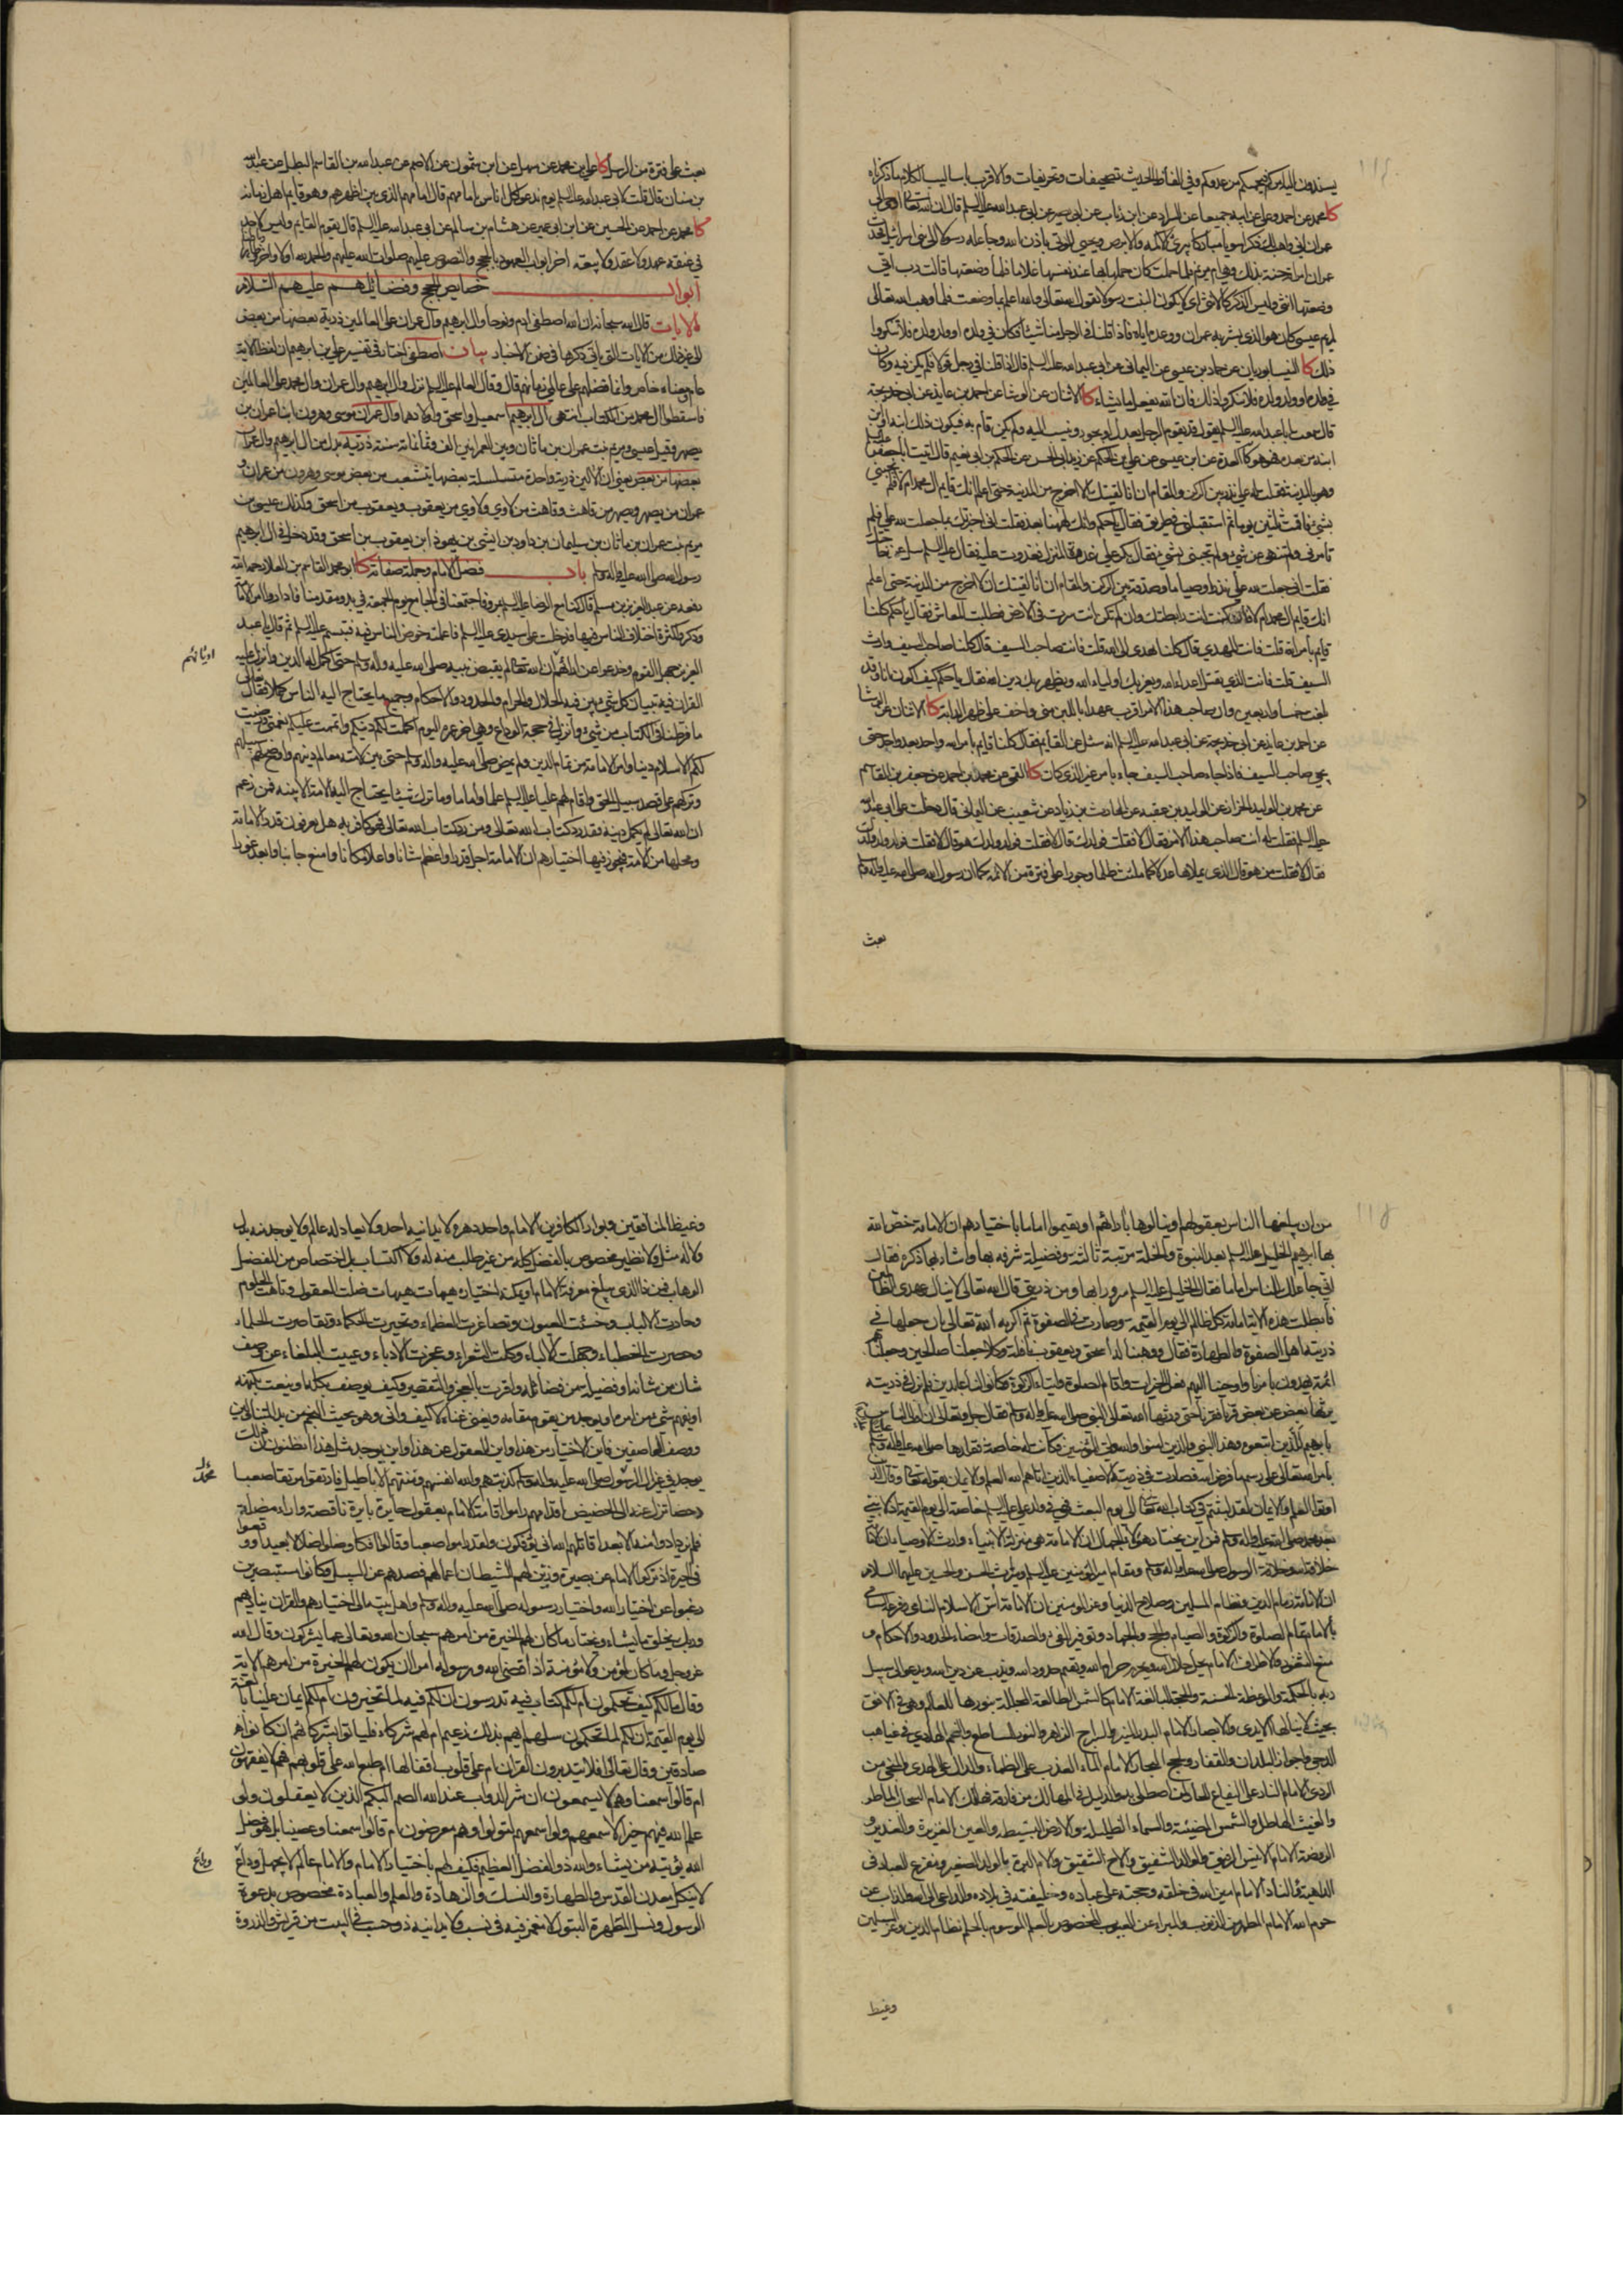 يسندون اليه من كفيهمكم من عدوكم وفي الفاظ الحديث تصحيفات وتحريفات والاقرب باساليب الكلام ما ذكرناه
كا محمد عن احمد وعلي عن ابيه جميعا عن السراد عن ابن رئاب عن ابي بصير عن ابي عبد الله عليه السلم قال ان الله تعالى اوحى الى
عمران اني واهب لك ذكرا سويا مباركا يبرئ الاكمه والابرص ويحيي الموتى باذن الله وجاعله رسولا الى بني اسرائيل فحدث
عمران امراته حنة بذلك وهي ام مريم فلما حملت كان حملها بها عند نفسها غلاما فلما وضعتها قالت رب اني
وضعتها انثى وليس الذكر كالانثى اي لا يكون البنت رسولا يقول الله تعالى والله اعلم بما وضعت فلما وهب الله تعالى
لمريم عيسى كان هو الذي بشر به عمران ووعده اياه فاذا قلنا في الرجل منا شيئا فكان في ولده او ولد ولده فلا تنكروا
ذلك كا النيسابوريان عن حماد بن عيسى عن اليماني عن ابي عبد الله عليه السلم قال اذا قلنا في رجل قولا فلم يكن فيه وكان
في ولده او ولد ولده فلا تنكروا ذلك فان الله يفعل ما يشاء كا الاثنان عن الوشا عن احمد بن عايذ عن ابي خديجة
قال سمعت ابا عبد الله عليه السلم يقول قد يقوم الرجل بعدل او بجور وينسب اليه ولم يكن قام به فيكون ذلك ابنه او ابن
ابنه من بعده فهو هو كا العدة عن ابن عيسى عن علي بن الحكم عن زيد ابي الحسن عن الحكم بن ابي نعيم قال اتيت ابا جعفر عليه السلم
وهو بالمدينة فقلت له علي نذر بين الركن والمقام ان انا لقيتك الا اخرج من المدينة حتى اعلم انك قايم ال محمد ام لا فلم يجبني
بشيء فاقمت ثلثين يوما ثم استقبلني في طريق فقال يا حكم وانك لههنا بعد فقلت اني اخبرتك بما جعلت لله علي فلم
تامرني ولم تنهني عن شيء ولم تجبني بشيء فقال بكر علي غدوة المنزل فغدوت عليه فقال عليه السلم سل عن حاجتك
فقلت اني جعلت لله علي نذرا وصياما وصدقة بين الركن والمقام ان انا لقيتك ان لا اخرج من المدينة حتى اعلم
انك قايم ال محمد ام لا فان كنت انت رابطتك وان لم تكن انت سرت في الارض فطلبت المعاش فقال يا حكم كلنا
قايم بامر الله قلت فانت المهدي قال كلنا نهدي الى الله قلت فانت صاحب السيف قال كلنا صاحب السيف ووارث
السيف قلت فانت الذي تقتل اعداء الله ويعز بك اولياء الله ويظهر بك دين الله فقال يا حكم كيف اكون انا وقد
بلغت خمسا واربعين وان صاحب هذا الامر اقرب عهدا باللبن مني واخف على ظهر الدابة كا الاثنان عن الوشا
عن احمد بن عايذ عن ابي خديجة عن ابي عبد الله عليه السلم انه سئل عن القايم فقال كلنا قايم بامر الله واحد بعد واحد حتى
يجيء صاحب السيف فاذا جاء صاحب السيف جاء بامر غير الذي كان كا القمي عن محمد بن احمد عن جعفر بن القاسم
عن محمد بن الوليد الخزاز عن الوليد بن عقبه عن الحارث بن زياد عن شعيب عن ابي قال دخلت على ابي عبد الله
عليه السلم فقلت له انت صاحب هذا الامر فقال لا فقلت فولدك قال لا فقلت فولد ولدك هو قال لا فقلت فولد ولد ولدك
فقال لا فقلت من هو قال الذي يملاها عدلا كما ملئت ظلما وجورا على فترة من الائمة كما ان رسول الله صلى الله عليه واله وسلم
بعث
بعث على فترة من الرسل كا علي بن محمد عن سهل عن ابن شمون عن الاصم عن عبد الله بن القاسم البطل عن عبد الله
بن سنان قال قلت لابي عبد الله عليه السلم يوم ندعو كل اناس بامامهم قال امامهم الذي بين اظهرهم وهو قايم اهل زمانه
كا محمد عن احمد عن الحسين عن ابن ابي عمير عن هشام بن سالم عن ابي عبد الله عليه السلم قال يقوم القايم وليس لاحد
في عنقه عهد ولا عقد ولا بيعة اخر ابواب العهود بالحجج والنصوص عليهم صلوات الله عليهم والحمد لله اولا واخرا
ابواب خصايص الحجج وفضائلهم عليهم السلام
الايات قال الله سبحانه ان الله اصطفى ادم ونوحا وال ابرهيم وال عمران على العالمين ذرية بعضها من بعض
الى غير ذلك من الايات التي ياتي ذكرها في ضمن الاخبار بيان اصطفى اختار في تفسير علي بن ابرهيم ان لفظ الاية
عام ومعناه خاص وانما فضلهم على عالمي زمانهم قال وقال العالم عليه السلم نزل وال ابرهيم وال عمران وال محمد على العالمين
فاسقطوا ال محمد من الكتاب انتهى ال ابرهيم اسمعيل واسحق واولادهما وال عمران موسى وهرون ابنا عمران بن
يصهر وقيل عيسى ومريم بنت عمران بن ماثان وبين العمرانين الف وثمانمائة سنة ذرية بدل من ال ابرهيم وال عمران
بعضها من بعض يعني ان الالين ذرية واحدة متسلسلة بعضها يتشعب من بعض موسى وهرون من عمران و
عمران من يصهر ويصهر من قاهث وقاهث من لاوي ولاوي من يعقوب ويعقوب من اسحق وكذلك عيسى بن
مريم بنت عمران بن ماثان من سليمان بن داود بن ايشى بن يهوذا ابن يعقوب بن اسحق وقد دخل في ال ابرهيم
رسول الله صلى الله عليه واله وسلم باب فضل الامام وجملة صفاته كا ابو محمد القاسم بن العلا رحمه الله
رفعه عن عبد العزيز بن مسلم قال كنا مع الرضا عليه السلم بمرو فاجتمعنا في الجامع يوم الجمعة في بدو مقدمنا فاداروا امر الامامة
وذكروا كثرة اختلاف الناس فيها فدخلت على سيدي عليه السلم فاعلمته خوض الناس فيه فتبسم عليه السلم ثم قال يا عبد
العزيز جهل القوم وخدعوا عن ارائهم ان الله تعالى لم يقبض نبيه صلى الله عليه واله وسلم حتى اكمل له الدين وانزل عليه
اديانهم
القران فيه تبيان كل شيء بين فيه الحلال والحرام والحدود والاحكام وجميع ما يحتاج اليه الناس كملا فقال تعالى
ما فرطنا في الكتاب من شيء وانزل في حجة الوداع وهي اخر عمره اليوم اكملت لكم دينكم واتممت عليكم نعمتي ورضيت
لكم الاسلام دينا وامر الامامة من تمام الدين ولم يمض صلى الله عليه واله وسلم حتى بين لامته معالم دينهم واوضح لهم سبيلهم
وتركهم على قصد سبيل الحق واقام لهم عليا عليه السلم علما واماما وما ترك شيئا يحتاج اليه الامة الا بينه فمن زعم
ان الله تعالى لم يكمل دينه فقد رد كتاب الله تعالى ومن رد كتاب الله تعالى فهو كافر به هل يعرفون قدر الامامة
ومحلها من الامة فيجوز فيها اختيارهم ان الامامة اجل قدرا واعظم شانا واعلا مكانا وامنع جانبا وابعد غورا
من ان يبلغها الناس بعقولهم او ينالوها بارائهم او يقيموا اماما باختيارهم ان الامامة خص الله
بها ابرهيم الخليل عليه السلم بعد النبوة والخلة مرتبة ثالثة وفضيلة شرفه بها واشاد بها ذكره فقال
اني جاعلك للناس اماما فقال الخليل عليه السلم سرورا بها ومن ذريتي قال الله تعالى لا ينال عهدي الظالمين
فابطلت هذه الاية امامة كل ظالم الى يوم القيمة وصارت في الصفوة ثم اكرمه الله تعالى بان جعلها في
ذريته اهل الصفوة والطهارة فقال ووهبنا له اسحق ويعقوب نافلة وكلا جعلنا صالحين وجعلناهم
ائمة يهدون بامرنا واوحينا اليهم فعل الخيرات واقام الصلوة وايتاء الزكوة وكانوا لنا عابدين فلم تزل في ذريته
يرثها بعض عن بعض قرنا فقرنا حتى ورثها الله تعالى النبي صلى الله عليه واله وسلم فقال جل وتعالى ان اولى الناس
بابرهيم للذين اتبعوه وهذا النبي والذين امنوا والله ولي المؤمنين فكانت له خاصة فقلدها صلى الله عليه واله وسلم عليا عليه السلم
بامر الله تعالى على رسم ما فرض الله فصارت في ذريته الاصفياء الذين اتاهم الله العلم والايمان بقوله تعالى وقال الذين
اوتوا العلم والايمان لقد لبثتم في كتاب الله تعالى الى يوم البعث فهي في ولد علي عليه السلم خاصة الى يوم القيمة اذ لا نبي
بعد محمد صلى الله عليه واله وسلم فمن اين يختار هؤلاء الجهال ان الامامة هي منزلة الانبياء وارث الاوصياء ان الامامة
خلافة الله وخلافة الرسول صلى الله عليه واله وسلم ومقام امير المؤمنين عليه السلم وميراث الحسن والحسين عليهما السلام
ان الامامة زمام الدين ونظام المسلمين وصلاح الدنيا وعز المؤمنين ان الامامة اس الاسلام النامي وفرعه السامي
بالامام تمام الصلوة والزكوة والصيام والحج والجهاد وتوفير الفيء والصدقات وامضاء الحدود والاحكام و
منع الثغور والاطراف الامام يحل حلال الله ويحرم حرام الله ويقيم حدود الله ويذب عن دين الله ويدعو الى سبيل
ربه بالحكمة والموعظة الحسنة والحجة البالغة الامام كالشمس الطالعة المجللة بنورها للعالم وهي في الافق
بحيث لا ينالها الايدي والابصار الامام البدر المنير والسراج الزاهر والنور الساطع والنجم الهادي في غياهب
الدجى واجواز البلدان والقفار ولجج البحار الامام الماء العذب على الظماء والدال على الهدى والمنجي من
الردى الامام النار على اليفاع الحار لمن اصطلى به والدليل في المهالك من فارقه فهالك الامام السحاب الماطر
والغيث الهاطل والشمس المضيئة والسماء الظليلة والارض البسيطة والعين الغزيرة والغدير و
الروضة الامام الانيس الرفيق والوالد الشفيق والاخ الشقيق والام البرة بالولد الصغير ومفزع العباد في
الداهية الناد الامام امين الله في خلقه وحجته على عباده وخليفته في بلاده والداعي الى الله والذاب عن
حرم الله الامام المطهر من الذنوب والمبراء عن العيوب المخصوص بالعلم الموسوم بالحلم نظام الدين وعز المسلمين
وغيظ
وغيظ المنافقين وبوار الكافرين الامام واحد دهره لا يدانيه احد ولا يعادله عالم ولا يوجد منه بدل
ولا له مثل ولا نظير مخصوص بالفضل كله من غير طلب منه له ولا اكتساب بل اختصاص من المفضل
الوهاب فمن ذا الذي يبلغ معرفة الامام او يمكنه اختياره هيهات هيهات ضلت العقول وتاهت الحلوم
وحارت الالباب وخسئت العيون وتصاغرت العظماء وتحيرت الحكماء وتقاصرت الحلماء
وحصرت الخطباء وجهلت الالباء وكلت الشعراء وعجزت الادباء وعييت البلغاء عن وصف
شان من شانه او فضيلة من فضائله واقرت بالعجز والتقصير وكيف يوصف بكله او ينعت بكنهه
او يفهم شيء من امره او يوجد من يقوم مقامه ويغني غناه لا كيف وانى وهو بحيث النجم من يد المتناولين
ووصف الواصفين فاين الاختيار من هذا واين العقول عن هذا واين يوجد مثل هذا اتظنون ان ذلك
يوجد في غير ال الرسول صلى الله عليه واله وسلم كذبتهم والله انفسهم ومنتهم الاباطيل فارتقوا مرتقا صعبا
محمد
دحضا تزل عنه الى الحضيض اقدامهم راموا اقامة الامام بعقول حايرة بايرة ناقصة واراء مضلة
فلم يزدادوا منه الا بعدا قاتلهم الله انى يؤفكون ولقد راموا صعبا وقالوا افكا وضلوا ضلالا بعيدا ووقعوا
في الحيرة اذ تركوا الامام عن بصيرة وزين لهم الشيطان اعمالهم فصدهم عن السبيل وكانوا مستبصرين
رغبوا عن اختيار الله واختيار رسوله صلى الله عليه واله وسلم واهل بيته الى اختيارهم والقران يناديهم
وربك يخلق ما يشاء ويختار ما كان لهم الخيرة من امرهم سبحان الله وتعالى عما يشركون وقال الله
عز وجل وما كان لمؤمن ولا مؤمنة اذا قضى الله ورسوله امرا ان يكون لهم الخيرة من امرهم الاية
وقال ما لكم كيف تحكمون ام لكم كتاب فيه تدرسون ان لكم فيه لما تخيرون ام لكم ايمان علينا بالغة
الى يوم القيمة ان لكم لما تحكمون سلهم ايهم بذلك زعيم ام لهم شركاء فلياتوا بشركائهم ان كانوا
صادقين وقال تعالى افلا يتدبرون القران ام على قلوب اقفالها ام طبع الله على قلوبهم فهم لا يفقهون
ام قالوا سمعنا وهم لا يسمعون ان شر الدواب عند الله الصم البكم الذين لا يعقلون ولو
علم الله فيهم خيرا لاسمعهم ولو اسمعهم لتولوا وهم معرضون ام قالوا سمعنا وعصينا بل هو فضل
الله يؤتيه من يشاء والله ذو الفضل العظيم فكيف لهم باختيار الامام والامام عالم لا يجهل وداع
وراع
لا ينكل معدن القدس والطهارة والنسك والزهادة والعلم والعبادة مخصوص بدعوة
الرسول ونسل المطهرة البتول لا مغمز فيه في نسب ولا يدانيه ذو حسب في البيت من قريش والذروة